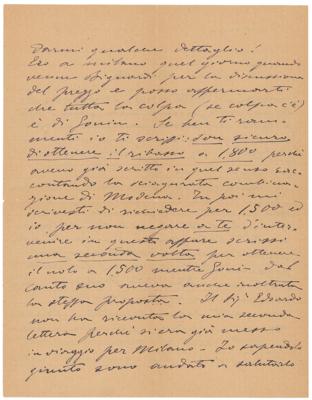 Darmi qualche dettaglio!
Ero a Milano quel giorno quando
venne Signardi per la discussione
del prezzo e posso affermarti
che tutta la colpa (se colpa c'è)
è di Gonin. Se ben ti ram-
menti io ti scrissi: son sicuro
di ottenere il ribasso a 1,800 perchè
avevo già scritto in quel senso rac-
contando la sciagurata combina-
zione di Modena. Tu poi mi
scrivesti di richiedere per 1,500 ed
io per non negare a te d'inter-
venire in questo affare scrissi
una seconda volta per ottenere
il nolo a 1500 mentre Gonin dal
canto suo aveva anche inoltrata
la stessa proposta. Il Sigr Edoardo
non ha ricevuta la mia seconda
lettera perchè si era già messo
in viaggio per Milano. Io sapendolo
giunto sono andato a salutarlo